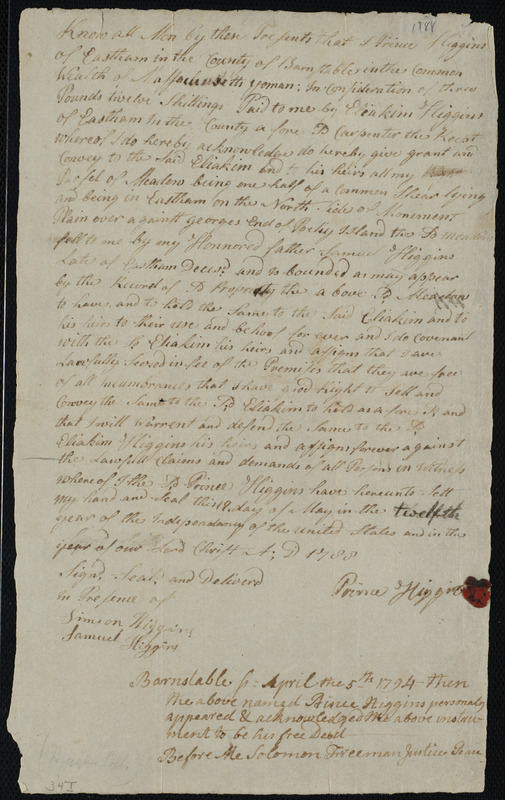 1788
Know all Men by these Presents that I Prince Higgins
of Eastham in the County of Barnstable in the Common
Wealth of Massachusetts yoman: In Consideration of three
Pounds twelve Shillings Paid to me by Eliakim Higgins
of Eastham In the County a fore sd Carpenter the Receit
whereof I do hereby acknowledge do hereby give grant and
Convey to the Said Eliakim and to his heirs all my
Parsel of Meadow being one half of a Common Shear lying
and being in Eastham on the North Side of Monument
Plain over againtt georges End of Pochy Island the sd Meadow
fell to me by my Honnored father Samuel Higgins
Late of Eastham Decesd and is bounded as may appear
by the Record of sd Propriety the a bove sd Meadow
to have and to hold the Same to the Said Eliakim and to
his heirs to their use and behoof for ever and I do Covenant
with the sd Eliakim his heirs and assigns that I ave
Lawfully Seezed in fee of the Premises that they are free
of all Incumbrances that I have good Right to Sell and
Convey the Same to the sd Eliakim to hold as a fore sd and
that I will Warrent and defend the Same to the sd
Eliakim Higgins his heirs and assigns forever against
the Lawfull Claims and demands of all Persons in Witness
whereof I the sd Prince Higgins have hereunto Sett
my hand and Seal this 18 day of May in the twelfth
year of the Independancy of the united States and in the
year of our Lord Christ A: D 1788
Signd Seald and Deliverd
In Presence of
Prince Higgins
Simeon Higgins
Samuel Higgins
Barnstable Ss: April the 5th 1794 then
the above named Prince Higgins personaly
appeared & acknowledged the above instru-
ment to be his free Deed
Before Me Solomon Freeman Justice Peace
34 I